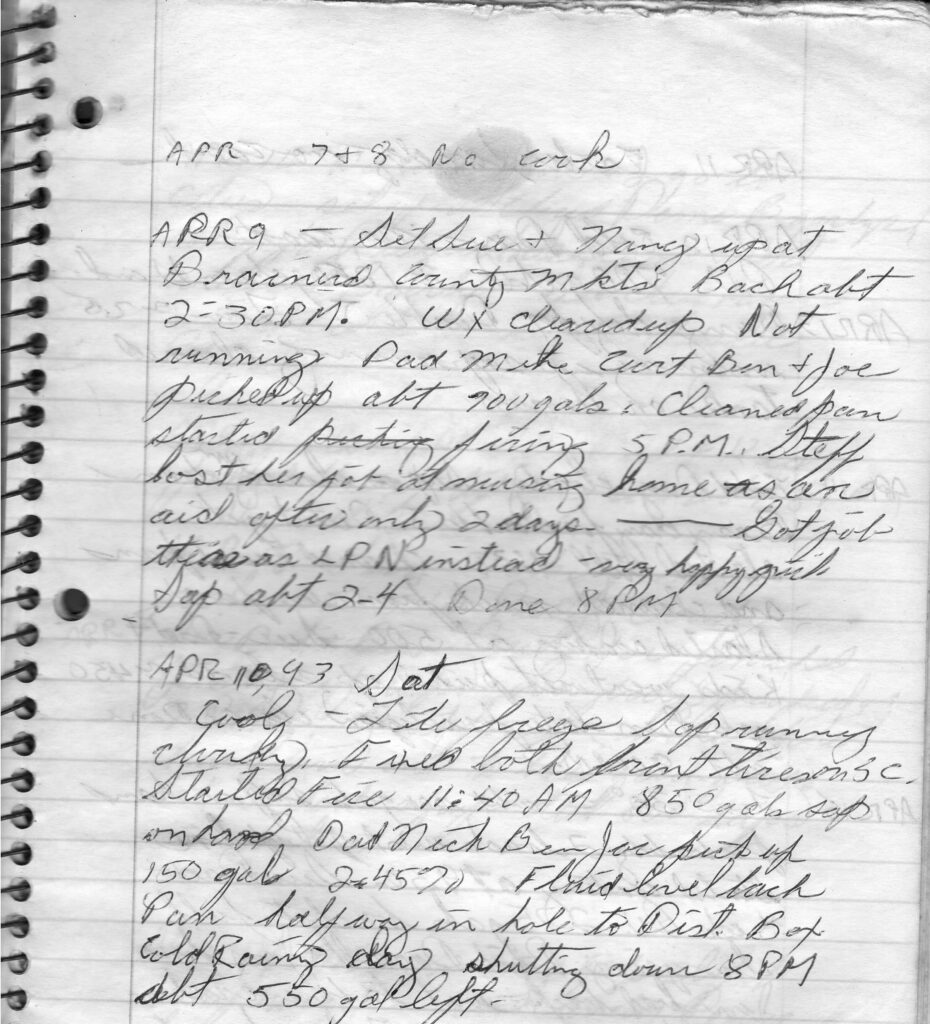 APR 7+8 No cook
APR 9 - Set Sue + Nancy up at
Brainerd County Mkts Back abt
2=30 PM. WX cleared up Not
running Dad Mike Curt Ben + Joe
picked up abt 900 gals. Cleaned pan
started firing 5 P.M. Steff
lost her job at nursing home as an
aid after only 2 days. — Got job
there as LPN instead - very happy
Sap abt 2-4 Done 8 PM
APR 10, 93 Sat
Cooly - Lite freeze Sap running
Fixed both front tires on SC.
Started Fire 11:40 AM 850 gals sap
on hand Dad Nick Ben Joe pick up
150 gals 2.45% Fluid level back
Pan half way in hole to Dist. Box
Cold Rainy day shutting down 8 PM
abt 550 gal left.